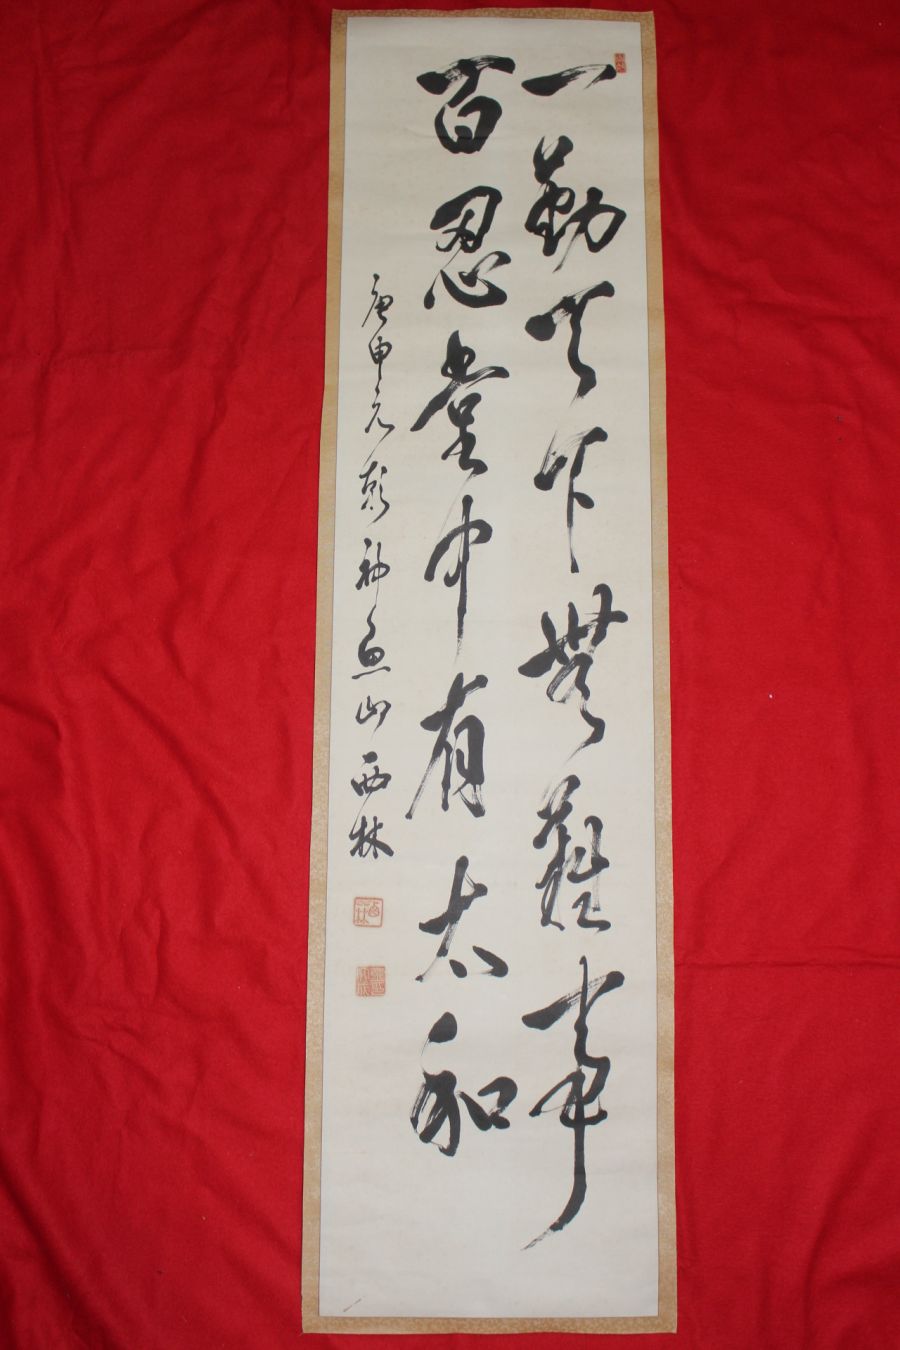 一勤天下無難事
百忍堂中有太和
庚申元 神魚山西林